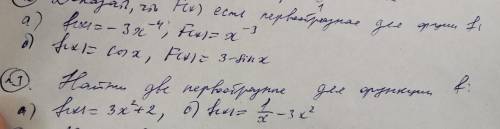 Доказать, что F(x) есть первообразная для функции f:
а) f(x) = -3x⁻⁴, F(x) = x⁻³
б) f(x) = cos x, F(x) = 3 - sin x
Найти две первообразные для функции f:
а) f(x) = 3x² + 2, б) f(x) = 1/x - 3x²